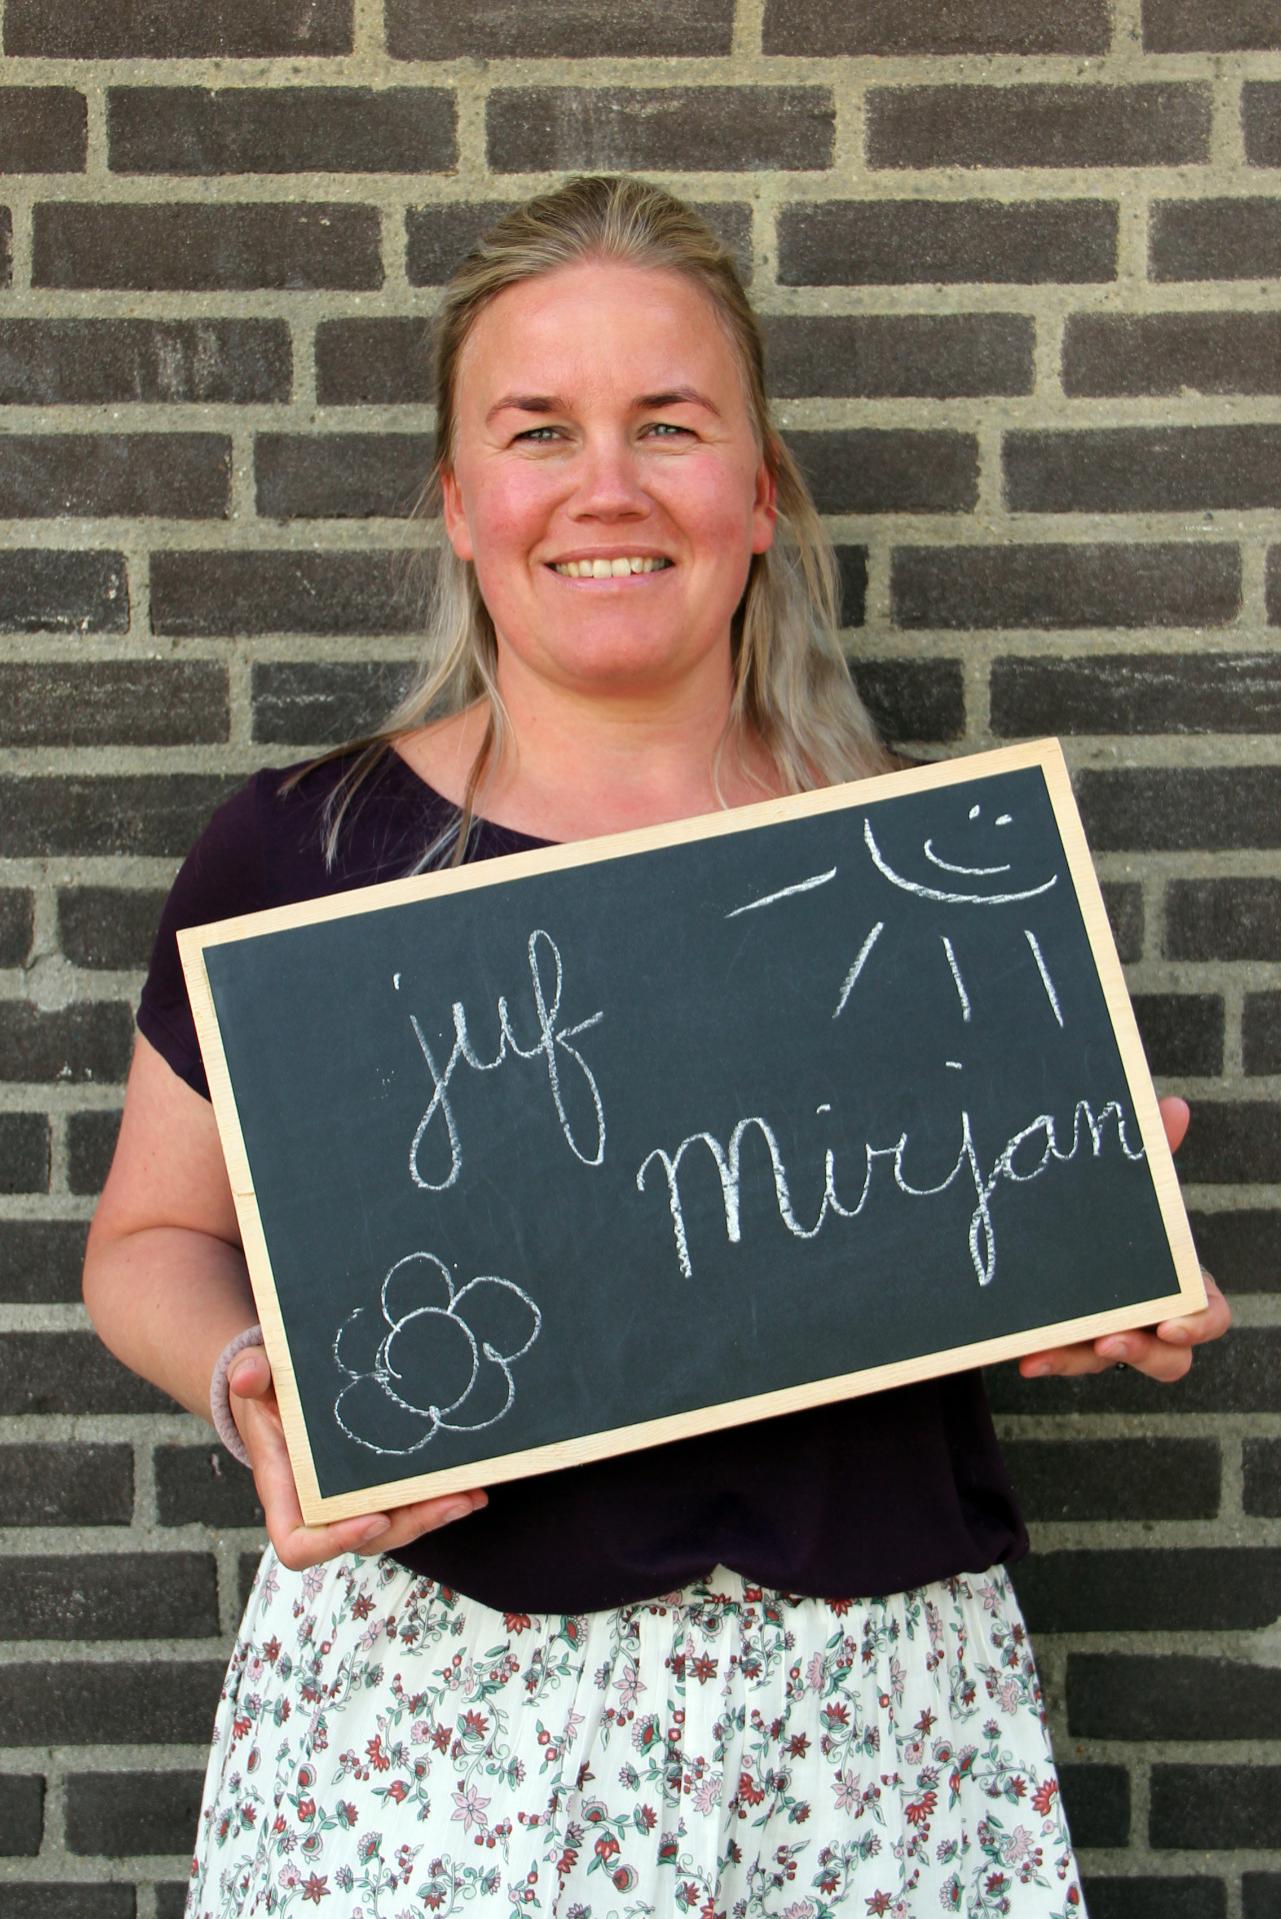 juf
Mirjan